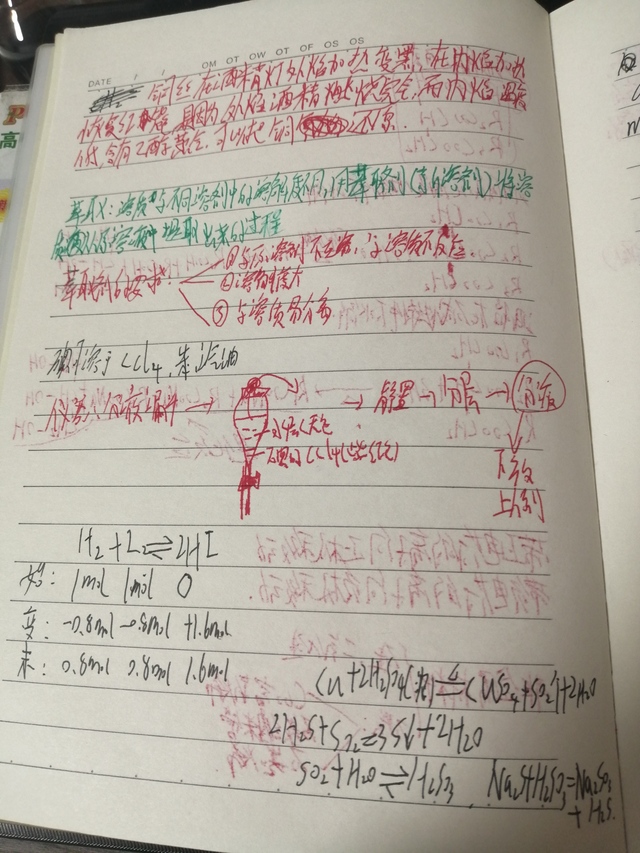 DATE / /
OM OT OW OT OF OS OS
铜丝在酒精灯外焰加热变黑,在内焰加热
恢复红色 是因为外焰酒精燃烧完全,而内焰温度
低,含有乙醇蒸气,可以把铜还原.
萃取:溶质在不同溶剂中的溶解度不同,用萃取剂(另一溶剂)将溶
质从溶液中提取出来的过程
萃取剂的要求:
①与原溶剂不互溶,与溶质不反应.
②溶解度大
③与溶质易分离
碘可溶于CCl4,苯,汽油
仪器:分液漏斗 → → 静置 → 分层 → 分液
水层(无色)
下层(CCl4(紫红色)
下放
上倒
H2+I2⇌2HI
始: 1mol 1mol 0
变: -0.8mol -0.8mol +1.6mol
末: 0.8mol 1.6mol
Cu+2H2SO4(浓)=△=CuSO4+SO2↑+2H2O
2H2S+SO2=3S↓+2H2O
SO2+H2O⇌H2SO3 Na2S+H2SO3=Na2SO3
+H2S.